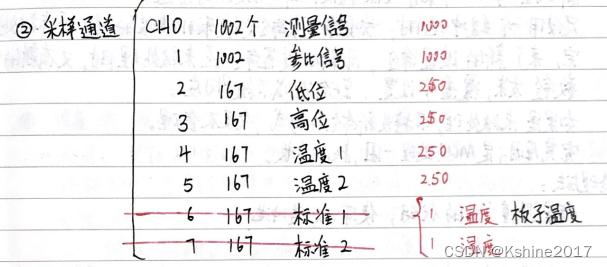 ② 采样通道 CH0 1002个 测量信号 1000
1 1002 参比信号 1000
2 167 低位 250
3 167 高位 250
4 167 温度1 250
5 167 温度2 250
6 167 标准1 1 温度 板子温度
7 167 标准2 1 湿度
CSDN @Kshine2017